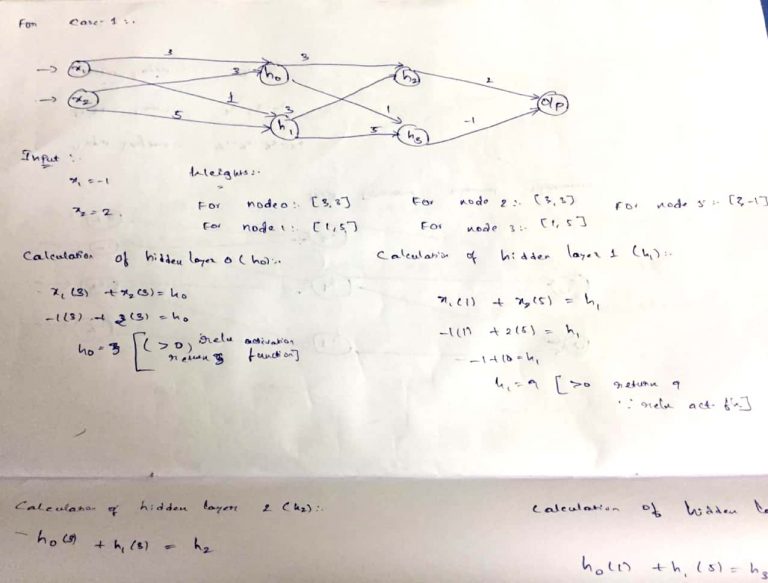 For Case-1 :-
x₁ 3 h₀ 3 h₂ 2 o/p
3 1 3 1
x₂ 5 h₁ 5 h₃ -1
Input :-
x₁ = -1
x₂ = 2.
Weights:-
For node 0:- [3,3]
For node 1:- [1,5]
For node 2:- [3,3]
For node 3:- [1,5]
For node 5:- [2,-1]
Calculation of hidden layer 0 (h₀):-
x₁(3) + x₂(3) = h₀
-1(3) + 2(3) = h₀
h₀ = 3 [(>0) relu activation
return 3 function]
Calculation of hidden layer 1 (h₁):-
x₁(1) + x₂(5) = h₁
-1(1) + 2(5) = h₁
-1+10 = h₁
h₁ = 9 [>0 return 9
∵ relu act. fn]
Calculation of hidden layer 2 (h₂):-
h₀(3) + h₁(3) = h₂
Calculation of hidden la
h₀(1) + h₁(5) = h₃